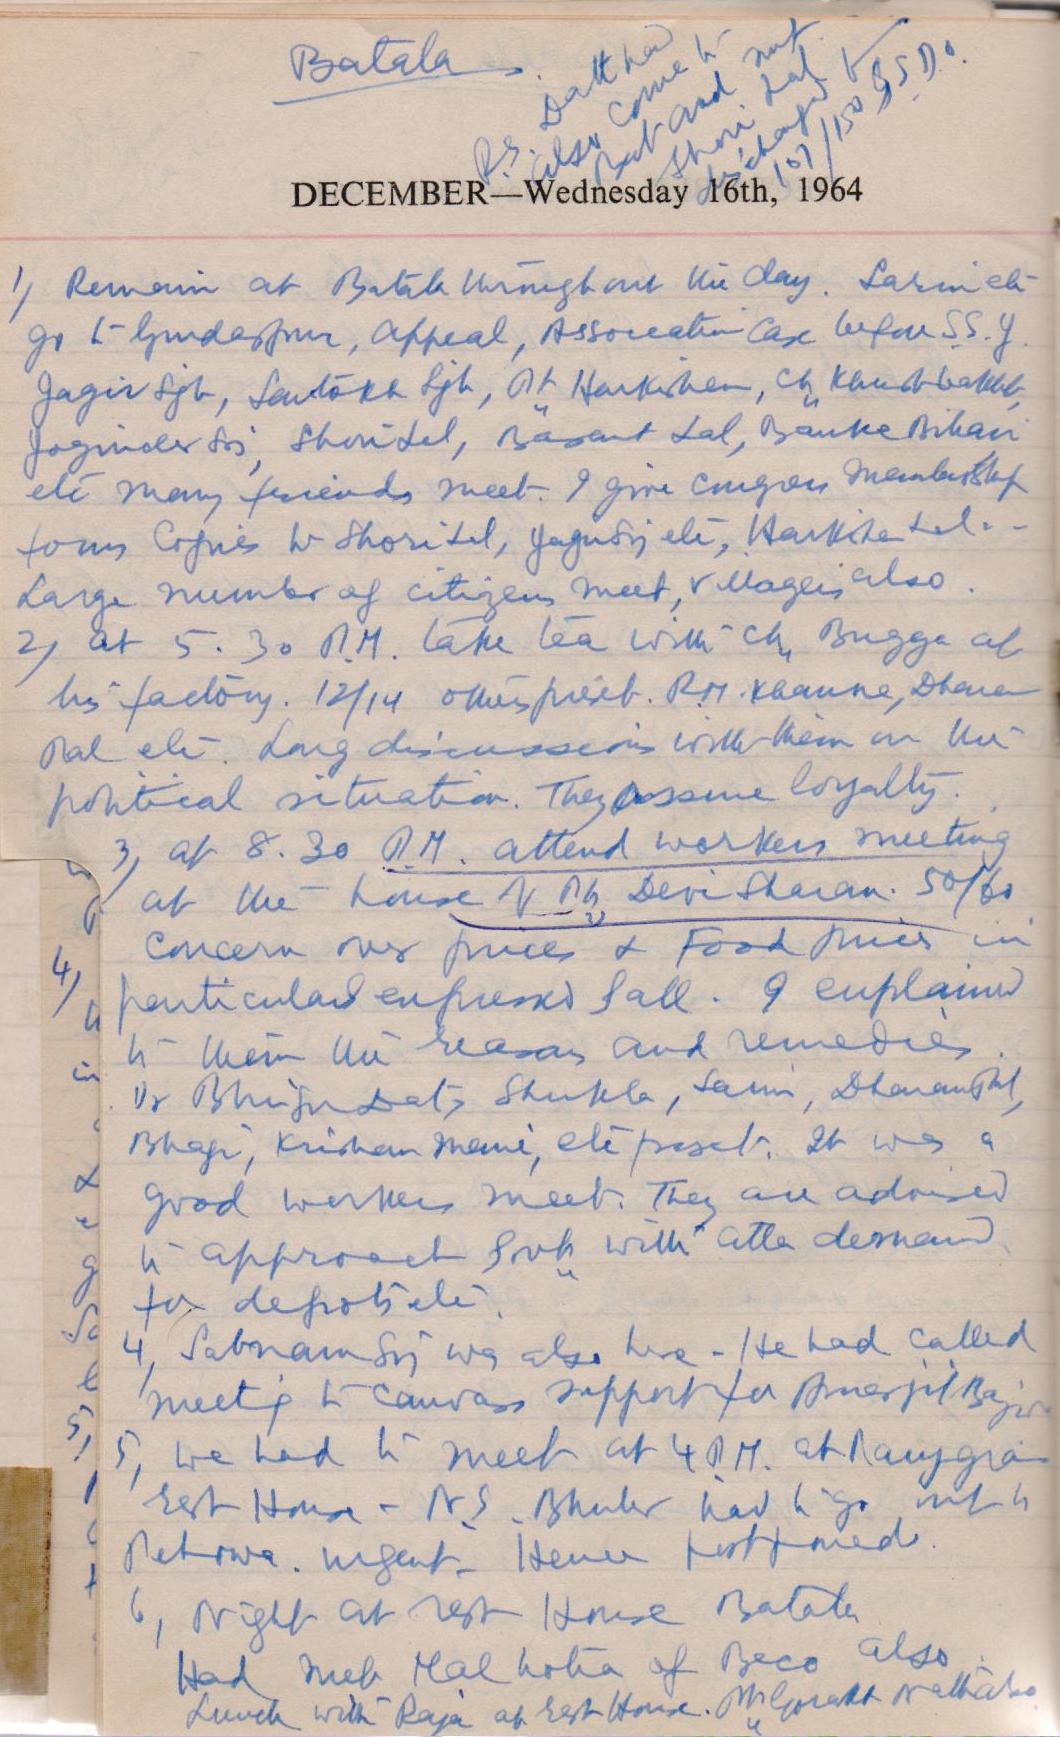 Batala
R.S. Datt had
also come to
But and met
Shori Lal
discharged
107/150
DECEMBER—Wednesday 16th, 1964
1) Remain at Batala throughout the day. Sarin etc
go to Gurdaspur, appeal, Association Case before S.S.J.
Jagir Sgh, Santokh Sgh, Pt Harkishen, Ch Khushbakht,
Joginder Sgh, Shori Lal, Basant Lal, Banke Bihari
etc many friends meet. I give congress membership
forms copies to Shori Lal, etc, Harkishen Lal --
Large number of citizens meet, villagers also.
2) at 5.30 P.M. take tea with Ch Bugga at
his factory. 12/14 others present. R.M. Khanna, Dharam
Pal etc. Long discussions with them on the
political situation. They assure loyalty.
3) at 8.30 P.M. attend workers meeting
at the house of Pt Devi Sharan. 50/60
Concern over prices & Food prices in
particular expressed by all. I explained
to them the reasons and remedies.
Dr Bhrigu Datt, Shukla, Sarin, Dharampal,
Bhagi, Krishan etc present. It was a
good workers meet. They are advised
to approach Govt with atta demand
for depots etc.
4, Satnam Sgh was also here - He had called
meeting to canvass support for Amarjit
5, we had to meet at 4 P.M. at
Rest House - N.S. had to go out to
urgent. Hence postponed.
6, Night at rest House Batala
Had met Malhotra of Beco also.
Lunch with Raja at Rest House. Pt Gorakh Nath also